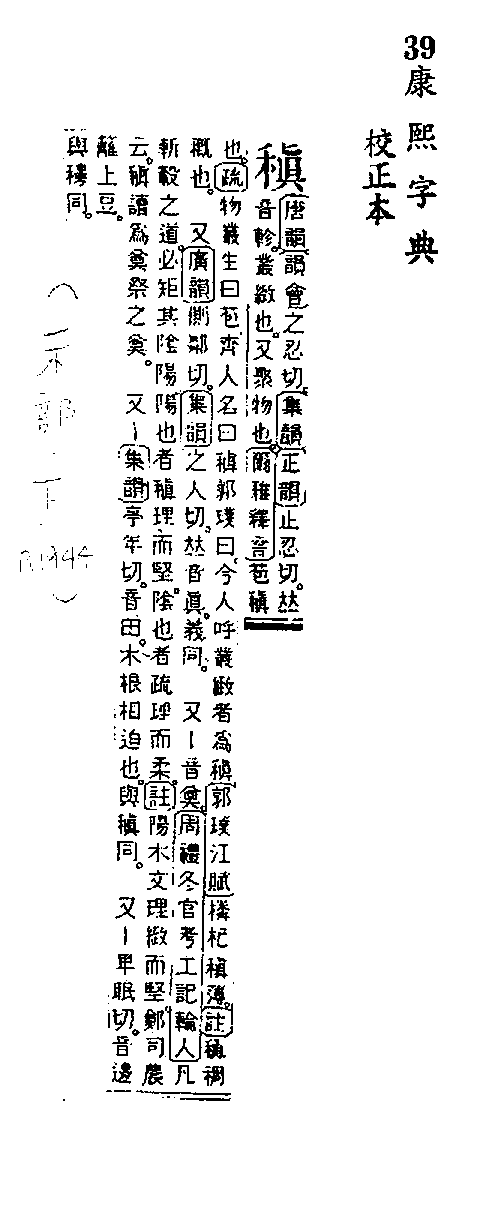 39
康熙字典
校正本
稹
唐韻韻會之忍切集韻正韻止忍切𠀤
音軫叢緻也又聚物也爾雅釋言苞稹
也疏物叢生曰苞齊人名曰稹郭璞曰今人呼叢緻者爲稹郭璞江賦橉杞稹薄註稹稠
概也 又廣韻側鄰切集韻之人切𠀤音眞義同 又丨音奠周禮冬官考工記輪人凡
斬轂之道必矩其陰陽陽也者稹理而堅陰也者疏理而柔註陽木文理緻而堅鄭司農
云稹讀爲奠祭之奠 又丨集韻亭年切音田木根相迫也與槇同 又丨卑眠切音邊
籬上豆
與穮同
(
木部
下
P.1944
)